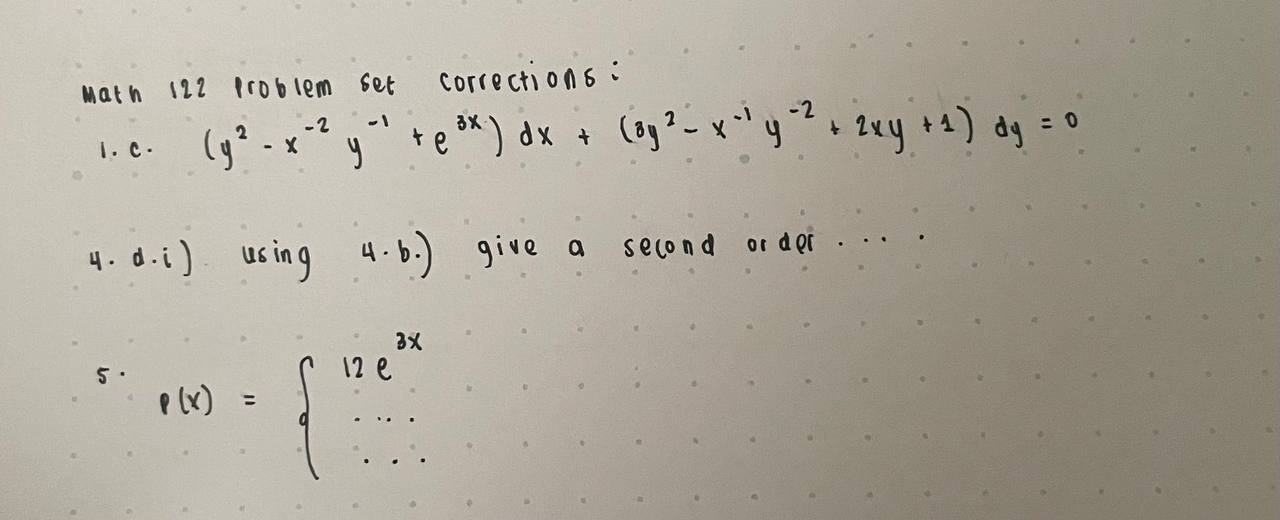 Math 122 Problem Set Corrections:
1. c. (y² - x⁻² y⁻¹ + e³ˣ) dx + (3y² - x⁻¹ y⁻² + 2xy + 1) dy = 0
4. d.i) using 4.b.) give a second order . . . .
5. p(x) = { 12 e³ˣ
. . . .
. . .